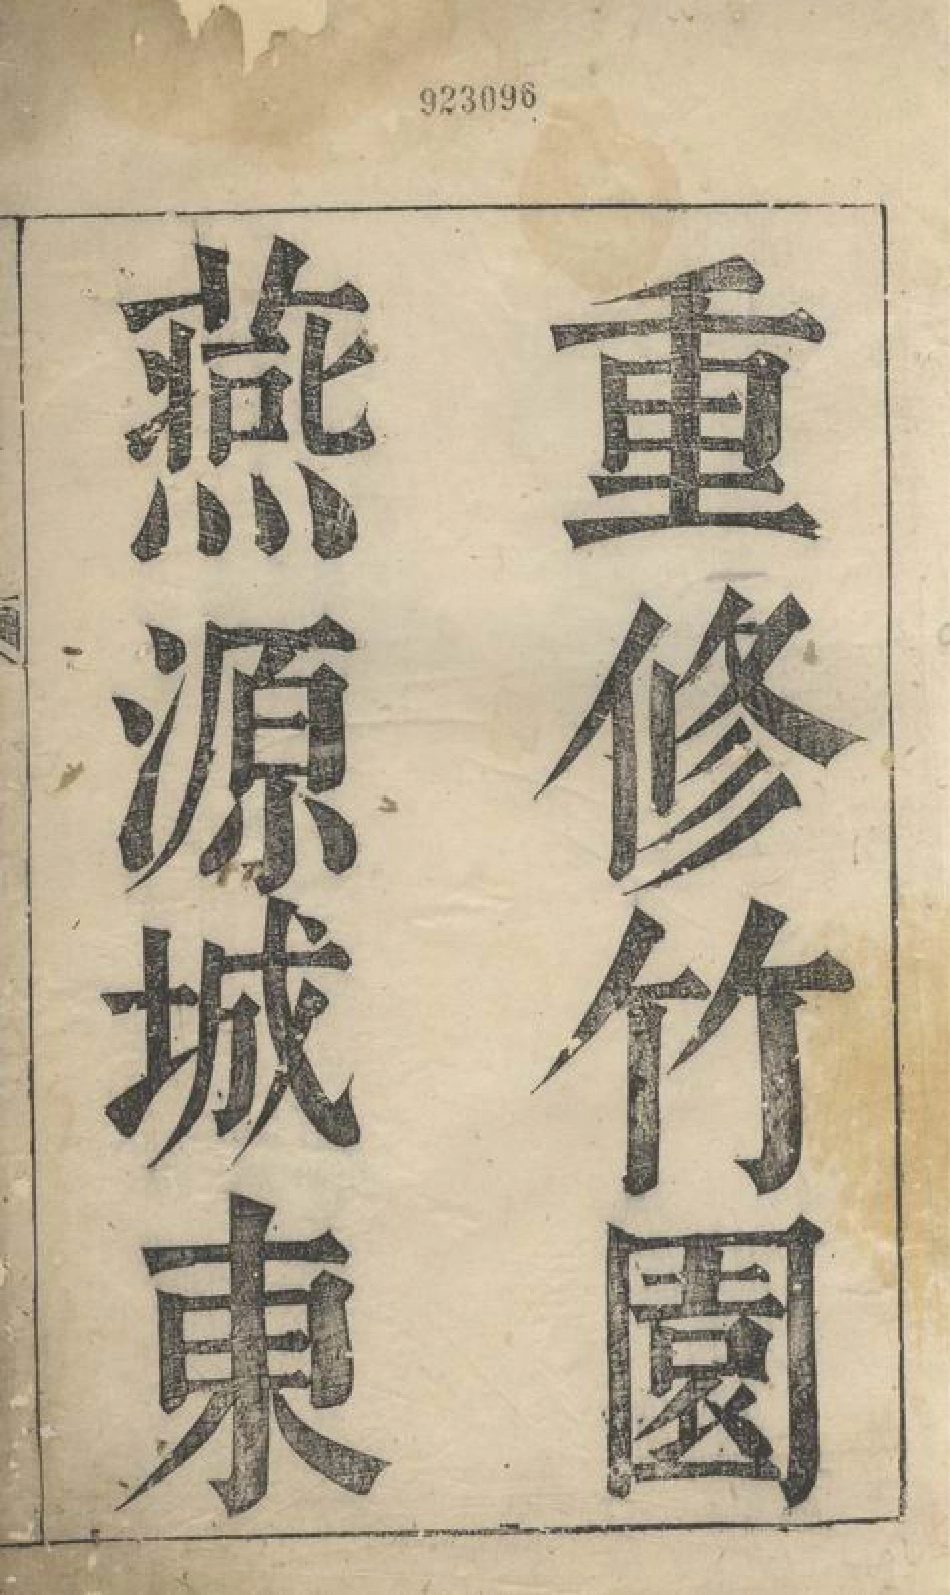 923096
重修竹園
燕源城東